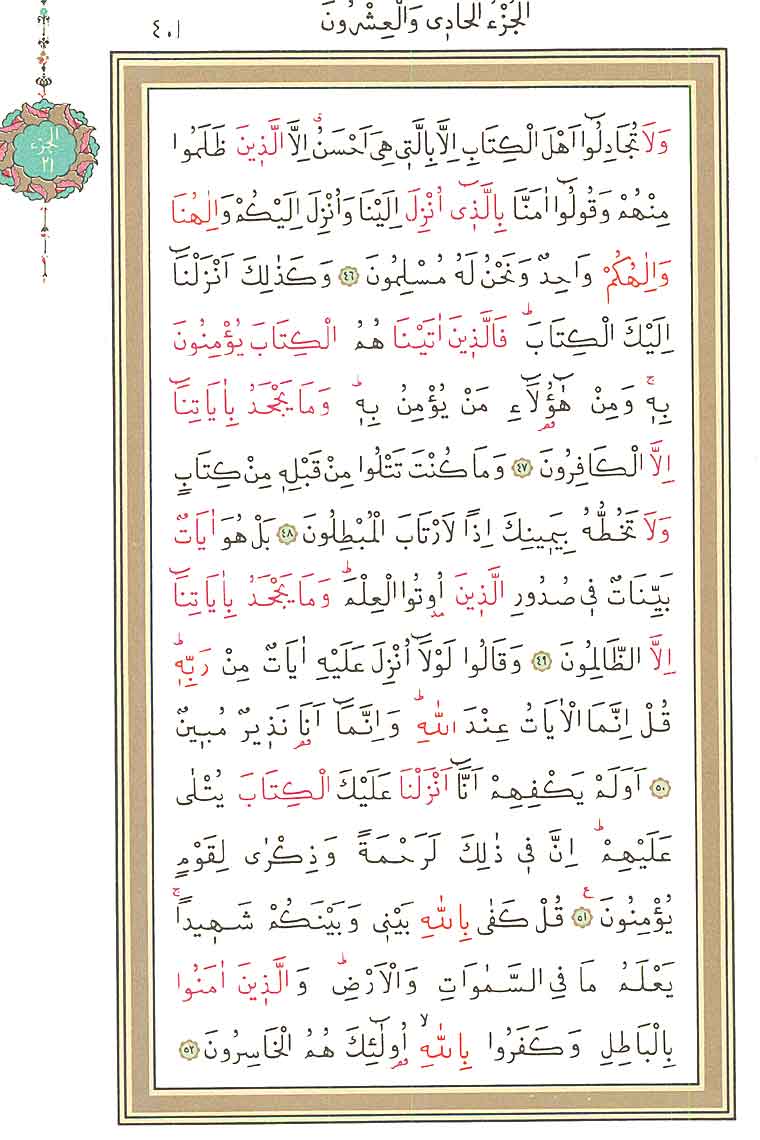 ٤٠١
اَلْجُزْءُ الْحَادِى وَالْعِشْرُونَ
الجزء
٢١
وَلَا تُجَادِلُٓوا اَهْلَ الْكِتَابِ اِلَّا بِالَّتٖى هِىَ اَحْسَنُۗ اِلَّا الَّذٖينَ ظَلَمُوا
مِنْهُمْ وَقُولُٓوا اٰمَنَّا بِالَّذٖٓى اُنْزِلَ اِلَيْنَا وَاُنْزِلَ اِلَيْكُمْ وَاِلٰهُنَا
وَاِلٰهُكُمْ وَاحِدٌ وَنَحْنُ لَهُ مُسْلِمُونَ ٤٦ وَكَذٰلِكَ اَنْزَلْنَٓا
اِلَيْكَ الْكِتَابَؕ فَالَّذٖينَ اٰتَيْنَا هُمُ الْكِتَابَ يُؤْمِنُونَ
بِهٖۚ وَمِنْ هٰٓؤُلَٓاءِ مَنْ يُؤْمِنُ بِهٖؕ وَمَا يَجْحَدُ بِاٰيَاتِنَٓا
اِلَّا الْكَافِرُونَ ٤٧ وَمَا كُنْتَ تَتْلُوا مِنْ قَبْلِهٖ مِنْ كِتَابٍ
وَلَا تَخُطُّهُ بِيَمٖينِكَ اِذًا لَارْتَابَ الْمُبْطِلُونَ ٤٨ بَلْ هُوَ اٰيَاتٌ
بَيِّنَاتٌ فٖى صُدُورِ الَّذٖينَ اُوتُوا الْعِلْمَؕ وَمَا يَجْحَدُ بِاٰيَاتِنَٓا
اِلَّا الظَّالِمُونَ ٤٩ وَقَالُوا لَوْلَٓا اُنْزِلَ عَلَيْهِ اٰيَاتٌ مِنْ رَبِّهٖؕ
قُلْ اِنَّمَا الْاٰيَاتُ عِنْدَ اللّٰهِؕ وَاِنَّمَٓا اَنَا۬ نَذٖيرٌ مُبٖينٌ
٥٠ اَوَلَمْ يَكْفِهِمْ اَنَّٓا اَنْزَلْنَا عَلَيْكَ الْكِتَابَ يُتْلٰى
عَلَيْهِمْؕ اِنَّ فٖى ذٰلِكَ لَرَحْمَةً وَذِكْرٰى لِقَوْمٍ
يُؤْمِنُونَ ع ٥١ قُلْ كَفٰى بِاللّٰهِ بَيْنٖى وَبَيْنَكُمْ شَهٖيدًاۚ
يَعْلَمُ مَا فِى السَّمٰوَاتِ وَالْاَرْضِؕ وَالَّذٖينَ اٰمَنُوا
بِالْبَاطِلِ وَكَفَرُوا بِاللّٰهِۙ اُو۬لٰٓئِكَ هُمُ الْخَاسِرُونَ ٥٢